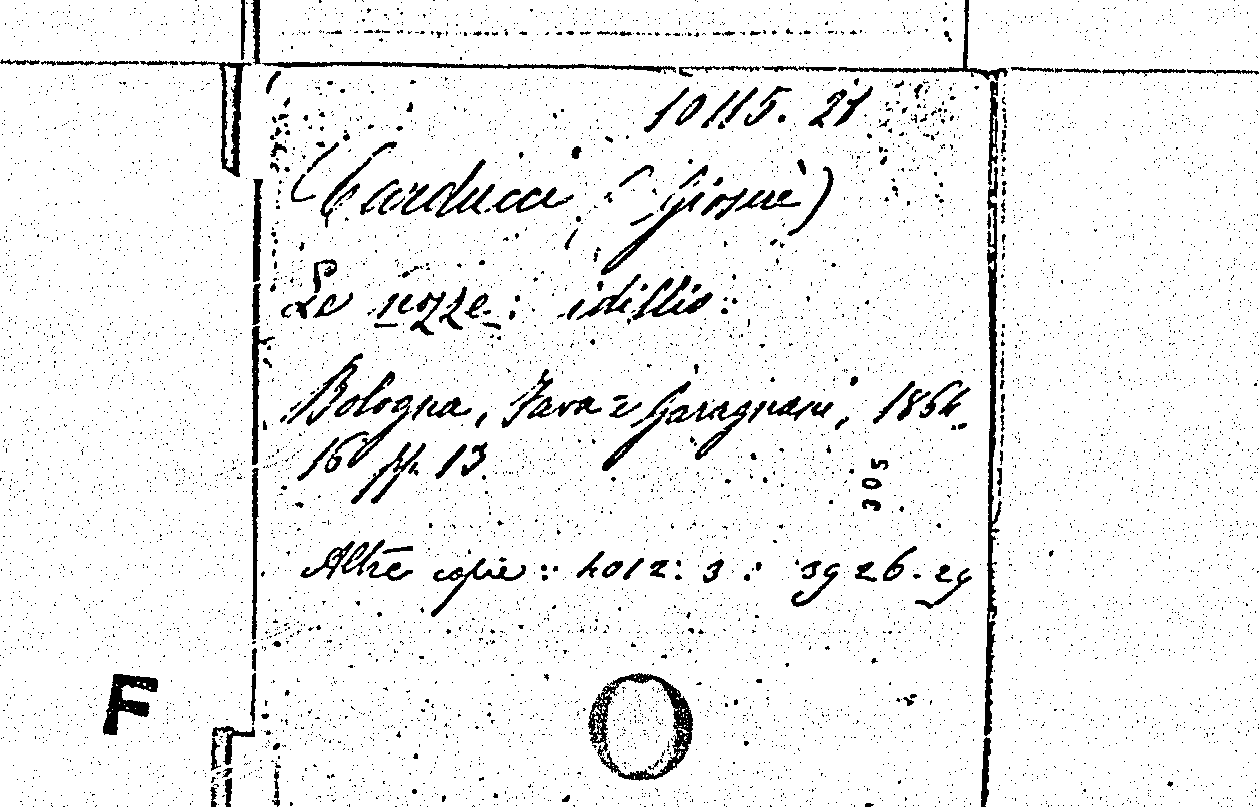 10115. 21
Carducci (Giosuè)
Le nozze: idillio:
Bologna, Fava e Garagnani, 1864.
16 pp. 13
305
Altre copie: 4012: 3: 3926. 29
F